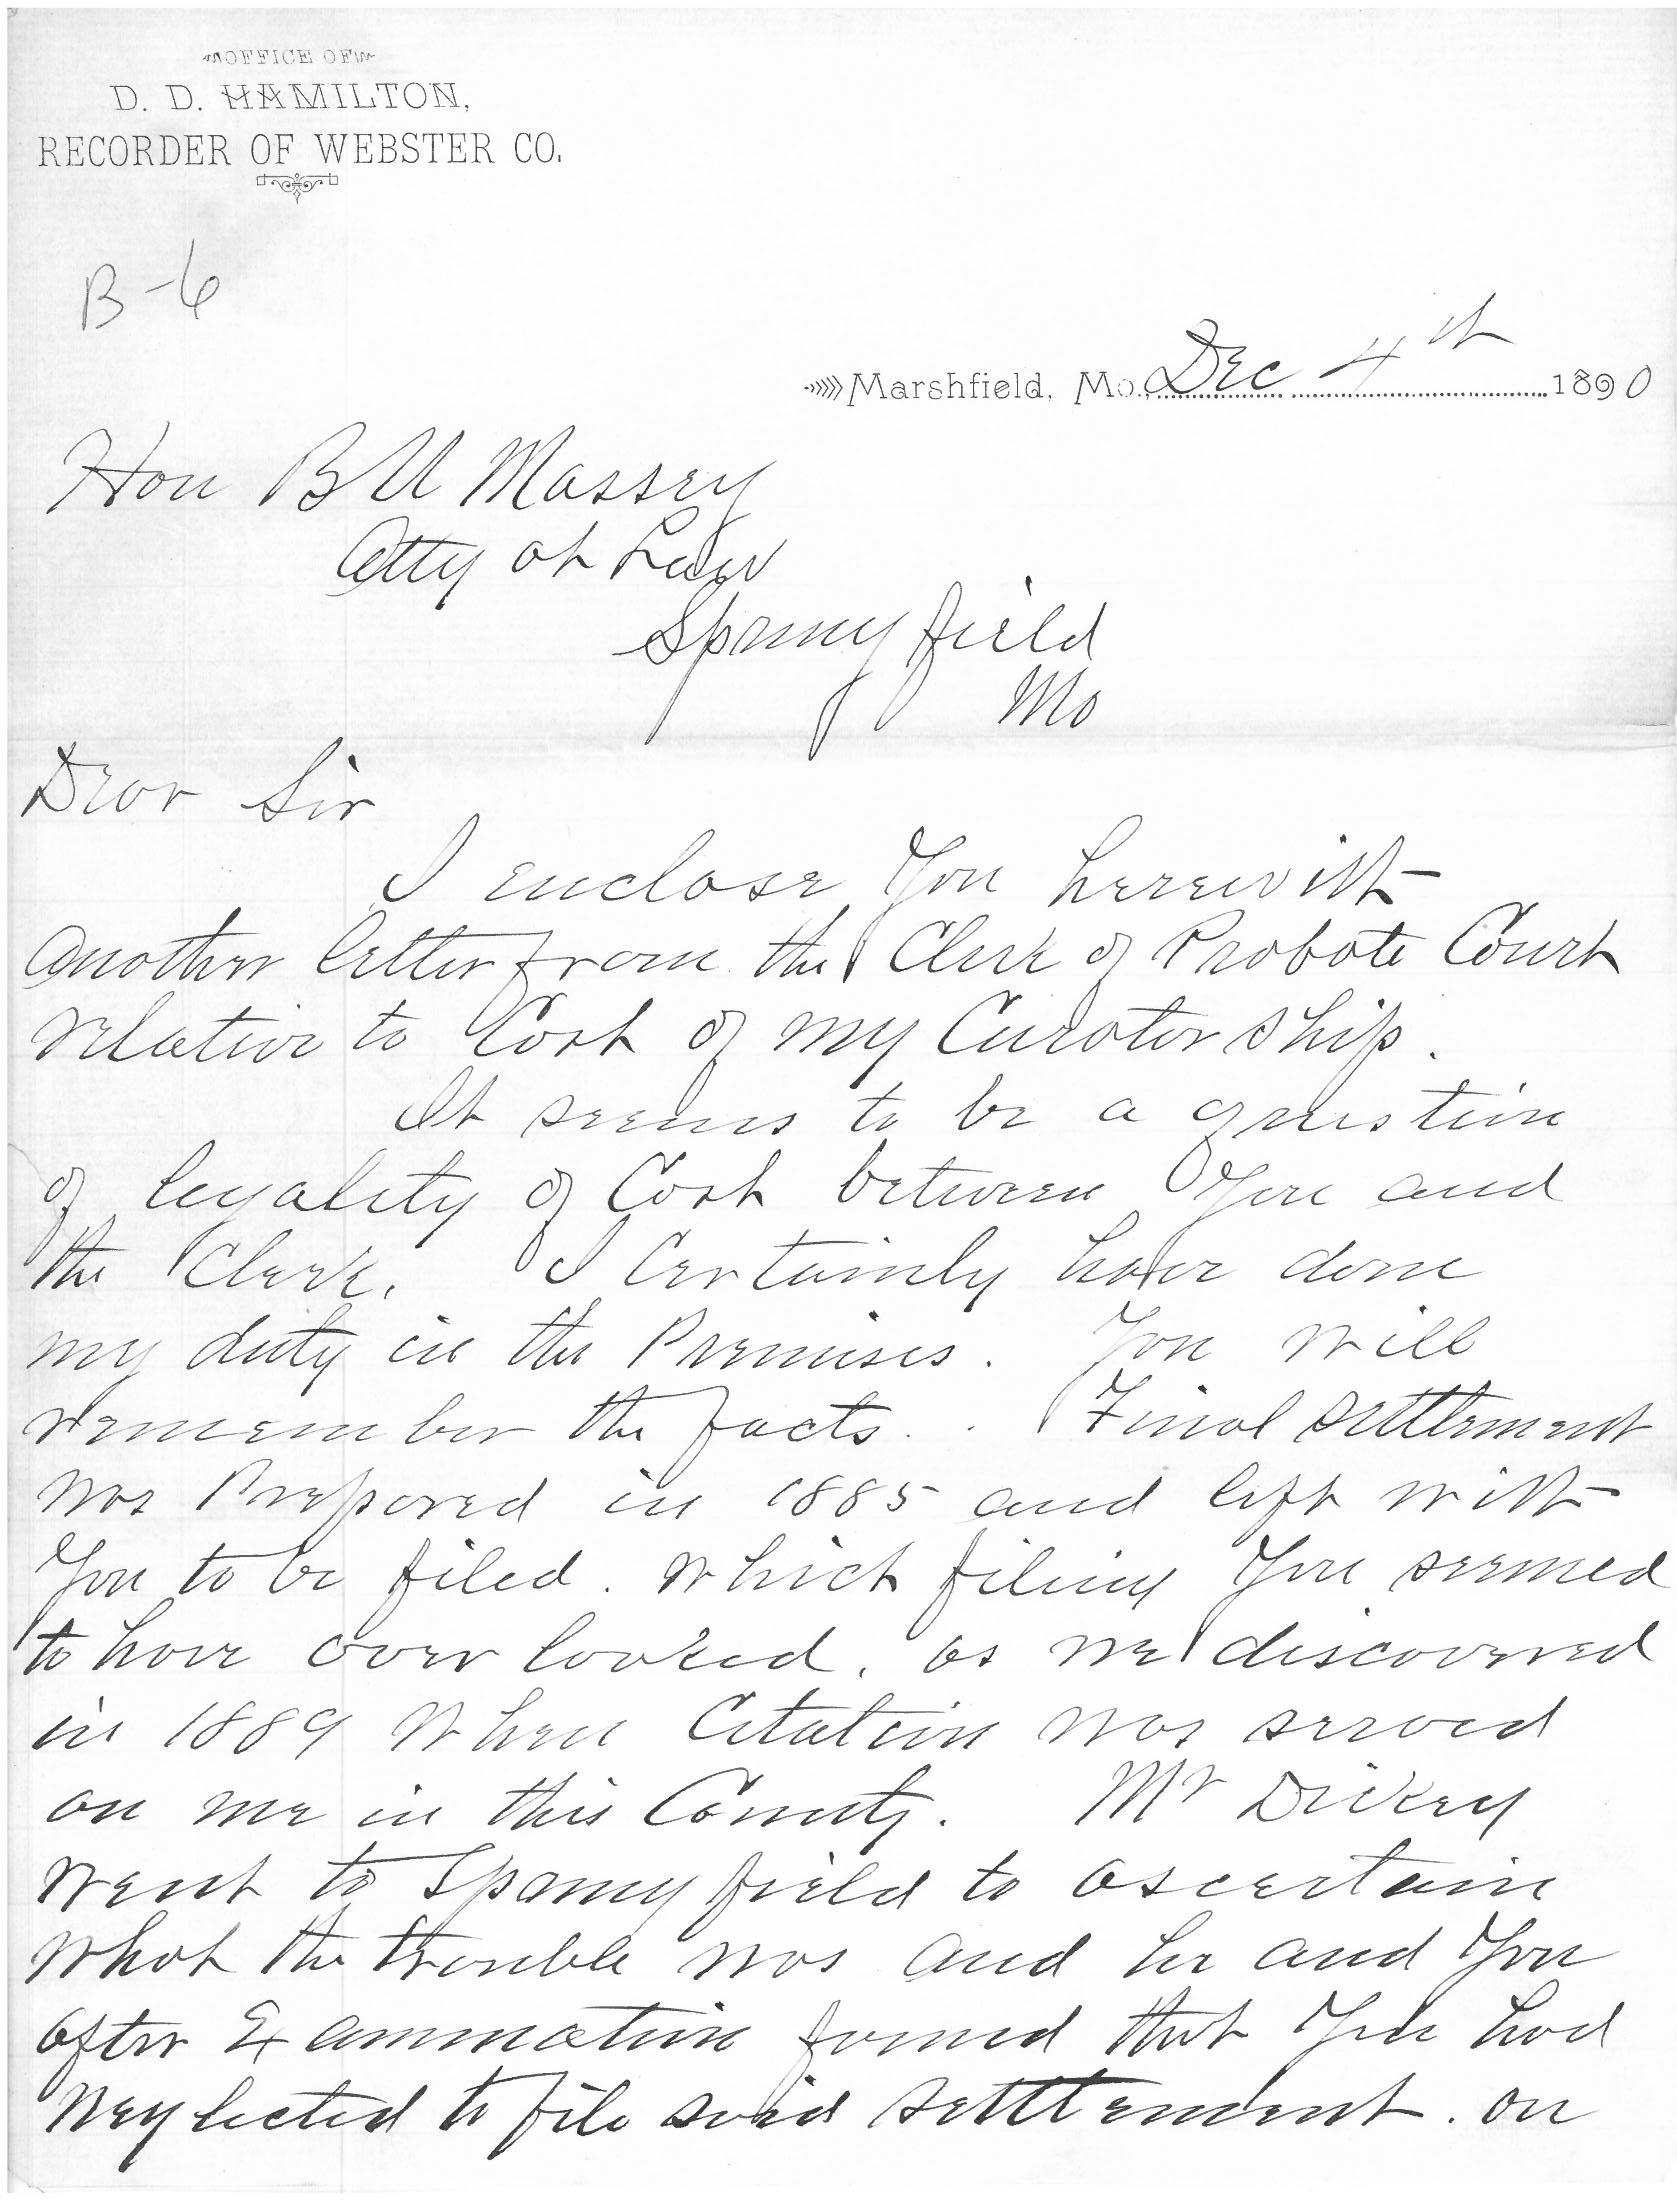 OFFICE OF
D. D. HAMILTON,
RECORDER OF WEBSTER CO.
B-6
Marshfield, Mo., Dec 4th 1890
Hon B U Massey
Atty at Law
Springfield
Mo
Dear Sir
I enclose You herewith
another letter from the Clerk of Probate Court
relative to Cost of my Curatorship.
It seems to be a question
of legality of Cost between You and
the Clerk. I Certainly have done
my duty in the Premises. You will
remember the facts. Final settlement
was Prepared in 1885 and left with
You to be filed. Which filing You seemed
to have over looked. as we discovered
in 1889 When Citation was served
on me in this County. Mr Dickey
Went to Springfield to ascertain
What the trouble was and he and You
after Examination found that You had
Neglected to file said settlement. on